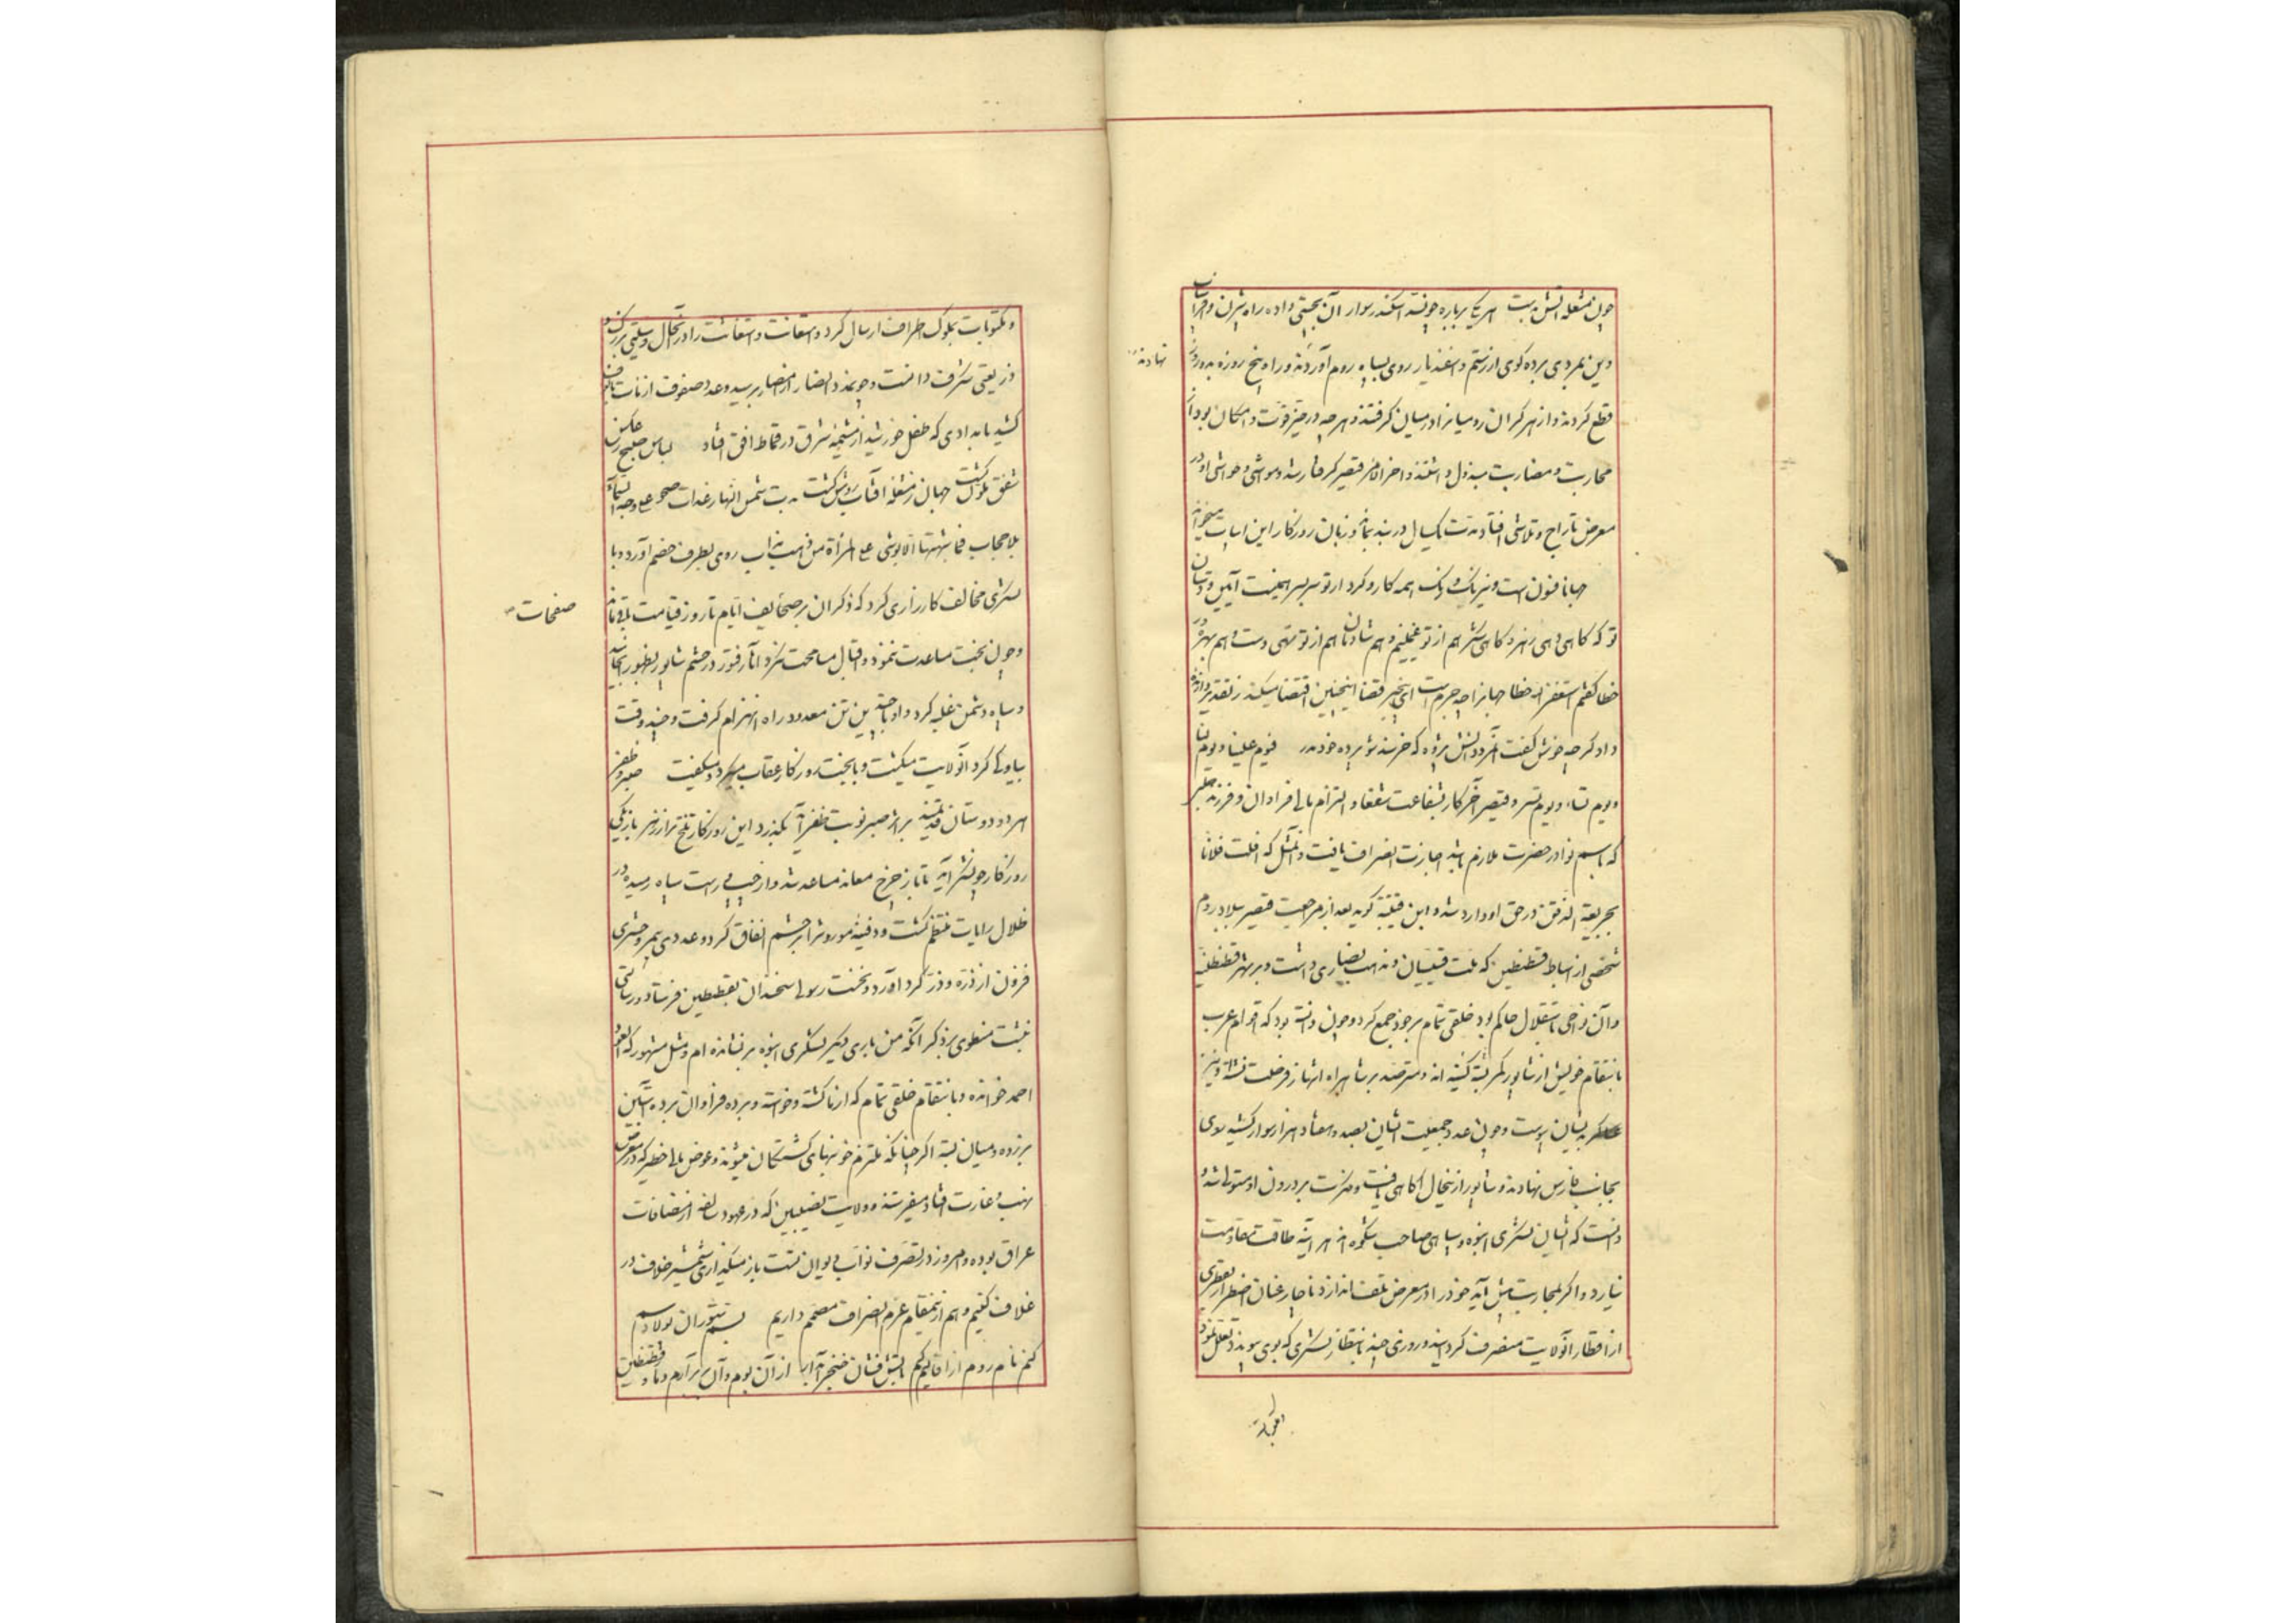 چون شعله آتش بدست هر یک بر باره چو اسکندر سوار آن
و بن نمردی برده کوی از رستم و اسفندیار روی بسپاه روم آوردند و راه پنج روزه بدو روز
نهادند
قطع کردند و از هر کران رومیانرا در میان کرفتند و هر چه در حیز قوت و امکان بود از
محاربت و مضاربت مبذول داشتند و اخر الامر قیصر کرفتار شد و مواشی و حواشی او در
معرض تاراج و تلاشی افتاد مدت یکسال در بند بماند و زبان روزکار این ابیات میخواند
جهانا فنون است و نیرنک و رنک همه کار و کردار تو سربسر
تو که کاهی دهی زهر و کاهی شکر هم از تو غمکینم و هم شادمان هم از تو تهی دست و هم بهره‌ور
خطا کفتم استغفر الله خطا جهانرا چه جرم است ای بیخبر قضا اینچنین اقتضا میکند ز تقدیر
داد کر چه خوش کفت آنمرد دانش پژوه که خرسند شو
و یوم نساء و یوم نسر و قیصر آخر کار بشفاعت شفعا و التزام مالی فراوان و فرزند
که باسم نوا در حضرت ملازم باشد اجازت انصراف یافت و المثل که افلت فلانا
بجریعة الذقن در حق او وارد شد و ابن قتیبه کوید بعد از مراجعت قیصر ببلاد روم
شخصی از اسباط قسطنطین که ملت قسیسان و مذهب نصاری داشت و بر شهر قسطنطنیه
و آن نواحی باستقلال حاکم بود خلقی تمام بر خود جمع کرد و چون دانسته بود که اقوام عرب
بانتقام خویش از شاپور کمر بسته کینه اند و مترصد بر شاهراه انتهاز فرصت نشسته
بدیشان پیوست و چون عدد جمعیت ایشان بصد و هفتاد هزار سوار کشید روی
بجانب فارس نهادند و شاپور از اینحال آکاهی یافت و حزن بر درون او مستولی شد و
دانست که ایشان لشکری انبوه و سپاهی صاحب شکوه اند هر آینه طاقت مقاومت
نیارد و اکر بمحاربت پیش آید خود را در معرض تلف اندازد ناچار عنان اضطرار
از اقطار آنولایت منصرف کردانید و روزی چند بانتظار لشکری که بوی پیوندد تعلل نمود
و مکتوبات بملوک اطراف ارسال کرد و استعانت و استغاثت را در آنحال وسیلتی بزرک و
ذریعتی شکرف دانست و چون مدد و انصار از امصار برسید و عدد صفوف از مآت بالوف
کشید بامدادی که طفل خورشید از مشیمه شرق در قماط افق افتاد لباس صبح
شفق کشت جهان ز شعله آفتاب روشن کشت بدت شمس النهار غداة صحو علی وجه السماء
بلا حجاب فما شبهتها الا بوشی علی المرأة من ذهب مذاب روی بطرف خصم آورد و با
لشکری مخالف کارزاری کرد که ذکر آن بر صحایف ایام تا روز قیامت باقی ماند
صفحات
و چون بخت مساعدت ننمود و اقبال مسامحت نکرد و آثار فتور در حشم شاپور بظهور انجامید
و سپاه دشمن غلبه کرد و او با چندین تن معدود راه انهزام کرفت و چند وقت
بیاوکی کرد آنولایت میکشت و با بخت و روزکار عتاب میکرد و میکفت صبر و ظفر
هر دو دوستان قدیمند بر اثر صبر نوبت ظفر آید بکذرد این روزکار تلخ‌تر از زهر بار دیکر
روزکار چو شکر آید تا باز چرخ معاند مساعد شد و از چپ و راست سپاه رسید و در
ظلال رایات منتظم کشت و دفینه موروث را بر حشم انفاق کرد و عددی بیمر و حشری
فزون از ذره و ذر کرد آورد و نخست رسولی سخندان بقسطنطین فرستاد و رسالتی
نبشت منطوی بر ذکر آنکه من باری دیکر لشکری انبوه بر نشانده ام و مثل مشهور که العود
احمد خوانده و بانتقام خلقی تمام که از ما کشته و خواسته و برده فراوان برده آستین
بر زده و میان بسته اکر چنانکه ملتزم خونبهای کشتکان میشوند و عوض مالی خطیر که در معرض
نهب و غارت افتاد میفرستند و ولایت نصیبین که در عهود سالفه از مضافات
عراق بوده و امروز در تصرف نواب دیوان تست باز میکذاری شمشیر خلاف در
غلاف کنیم و هم از اینمقام عزم انصراف مصمم داریم بسم ستوران پولاد سم
کنم نام روم از اقالیم کم بآتش فشان خنجر آبدار از آن بوم و آن بر برآرم دمار و قسطنطین